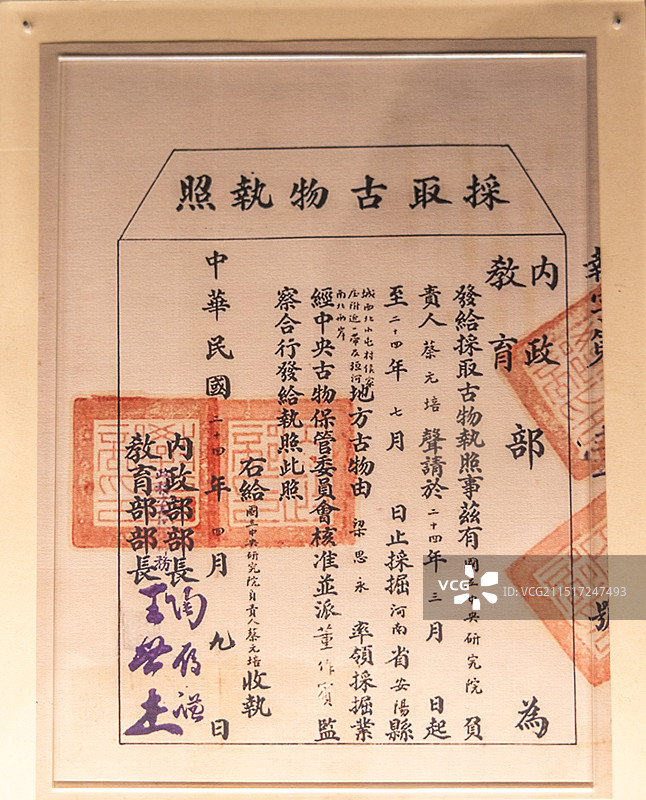 採取古物執照
執字第壹號
內政
教育
部
為
發給採取古物執照事茲有國立中央研究院負
責人蔡元培聲請於二十四年三月 日起
至二十四年七月 日止採掘河南省安陽縣
城西北小屯村侯家
庄附近一帶及洹河
南北兩岸
地方古物由梁思永率領採掘業
經中央古物保管委員會核准並派董作賓監
察合行發給執照此照
右給國立中央研究院負責人蔡元培收執
中華民國二十四年四月九日
內政部部長陶履謙
教育部部長王世杰
VCG
ID:VCG211517247493